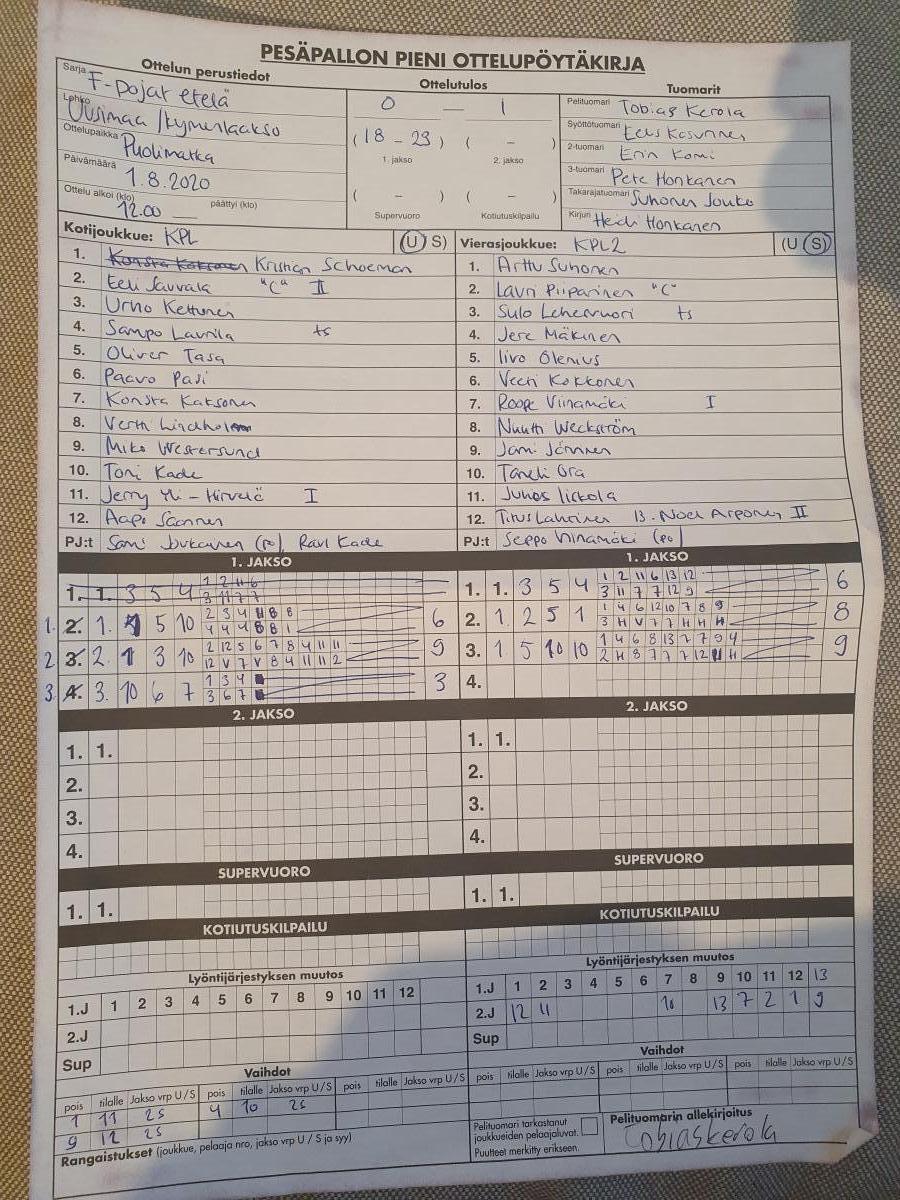 PESÄPALLON PIENI OTTELUPÖYTÄKIRJA
Ottelun perustiedot
Sarja F-pojat etelä
Lohko Uusimaa /kymenlaakso
Ottelupaikka Puolimatka
Päivämäärä 1.8.2020
Ottelu alkoi (klo) 12.00 päättyi (klo)
Ottelutulos
0 — 1
(18 - 23) ( - )
1. jakso 2. jakso
( - ) ( - )
Supervuoro Kotiutuskilpailu
Tuomarit
Pelituomari Tobias Kerola
Syöttötuomari Eelis Kosunen
2-tuomari Erin Komi
3-tuomari Pete Honkanen
Takarajatuomari Suhonen Jouko
Kirjuri Heidi Honkanen
Kotijoukkue: KPL (U S)
1. Kristian Schoeman
2. Eeli Sauvala "C" II
3. Urho Kettunen
4. Sampo Laurila ts
5. Oliver Tasa
6. Paavo Pasi
7. Konsta Kaksonen
8. Verti
9. Miko Westersund
10. Toni Kade
11. Jerry Yli-Hirvelä I
12. Aapo Saonnen
PJ:t Sami Joukanen (po) Ravi Kade
Vierasjoukkue: KPL2 (U S)
1. Arttu Suhonen
2. Lauri Piiparinen "C"
3. Sulo Lehesvuori ts
4. Jere Mäkinen
5. Iivo Olenius
6. Veeti Kokkonen
7. Roope Viinamäki I
8. Nuutti Weckström
9. Jami Jännen
10. Taneli Ora
11. Juhos Iiskola
12. Titus Lahtinen 13. Noel Arponen II
PJ:t Seppo Viinamäki (po)
1. JAKSO
1. 1. 3 5 4 1 2 11 6
3 11 7 7
1. 2. 1. 4 5 10 2 3 4 11 8 8 6
4 4 4 8 8 1
2 3. 2. 1 3 10 2 12 5 6 7 8 4 11 11 9
12 V 7 V 8 4 11 11 2
3. 4. 3. 10 6 7 1 3 4 3
3 6 7
1. JAKSO
1. 1. 3 5 4 1 2 11 6 13 12 6
3 11 7 7 12 9
2. 1 2 5 1 1 4 6 12 10 7 8 9 8
3 H V 7 7 H H H
3. 1 5 10 10 1 4 6 8 13 7 7 9 4 9
2 H 8 7 7 7 12 H H
4.
2. JAKSO
1. 1.
2.
3.
4.
2. JAKSO
1. 1.
2.
3.
4.
SUPERVUORO
1. 1.
SUPERVUORO
1. 1.
KOTIUTUSKILPAILU
KOTIUTUSKILPAILU
Lyöntijärjestyksen muutos
1.J 1 2 3 4 5 6 7 8 9 10 11 12
2.J
Sup
Lyöntijärjestyksen muutos
1.J 1 2 3 4 5 6 7 8 9 10 11 12 13
2.J 12 11 10 13 7 2 1 9
Sup
Vaihdot
pois tilalle Jakso vrp U/S pois tilalle Jakso vrp U/S pois tilalle Jakso vrp U/S
1 11 2S 4 10 2S
9 12 2S
Vaihdot
pois tilalle Jakso vrp U/S pois tilalle Jakso vrp U/S pois tilalle Jakso vrp U/S
Rangaistukset (joukkue, pelaaja nro, jakso vrp U / S ja syy)
Pelituomari tarkastanut
joukkueiden pelaajaluvat.
Puutteet merkitty erikseen.
Pelituomarin allekirjoitus
Tobiaskerola